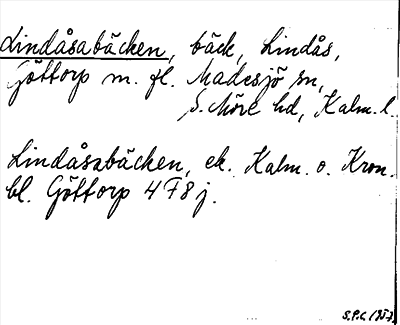 Lindåsabäcken, bäck, Lindås,
Göttorp m. fl. Madesjö sn,
S. Möre hd, Kalm. l.
Lindåsabäcken, ek. Kalm. o. Kron.
bl. Göttorp 4 F8 j.